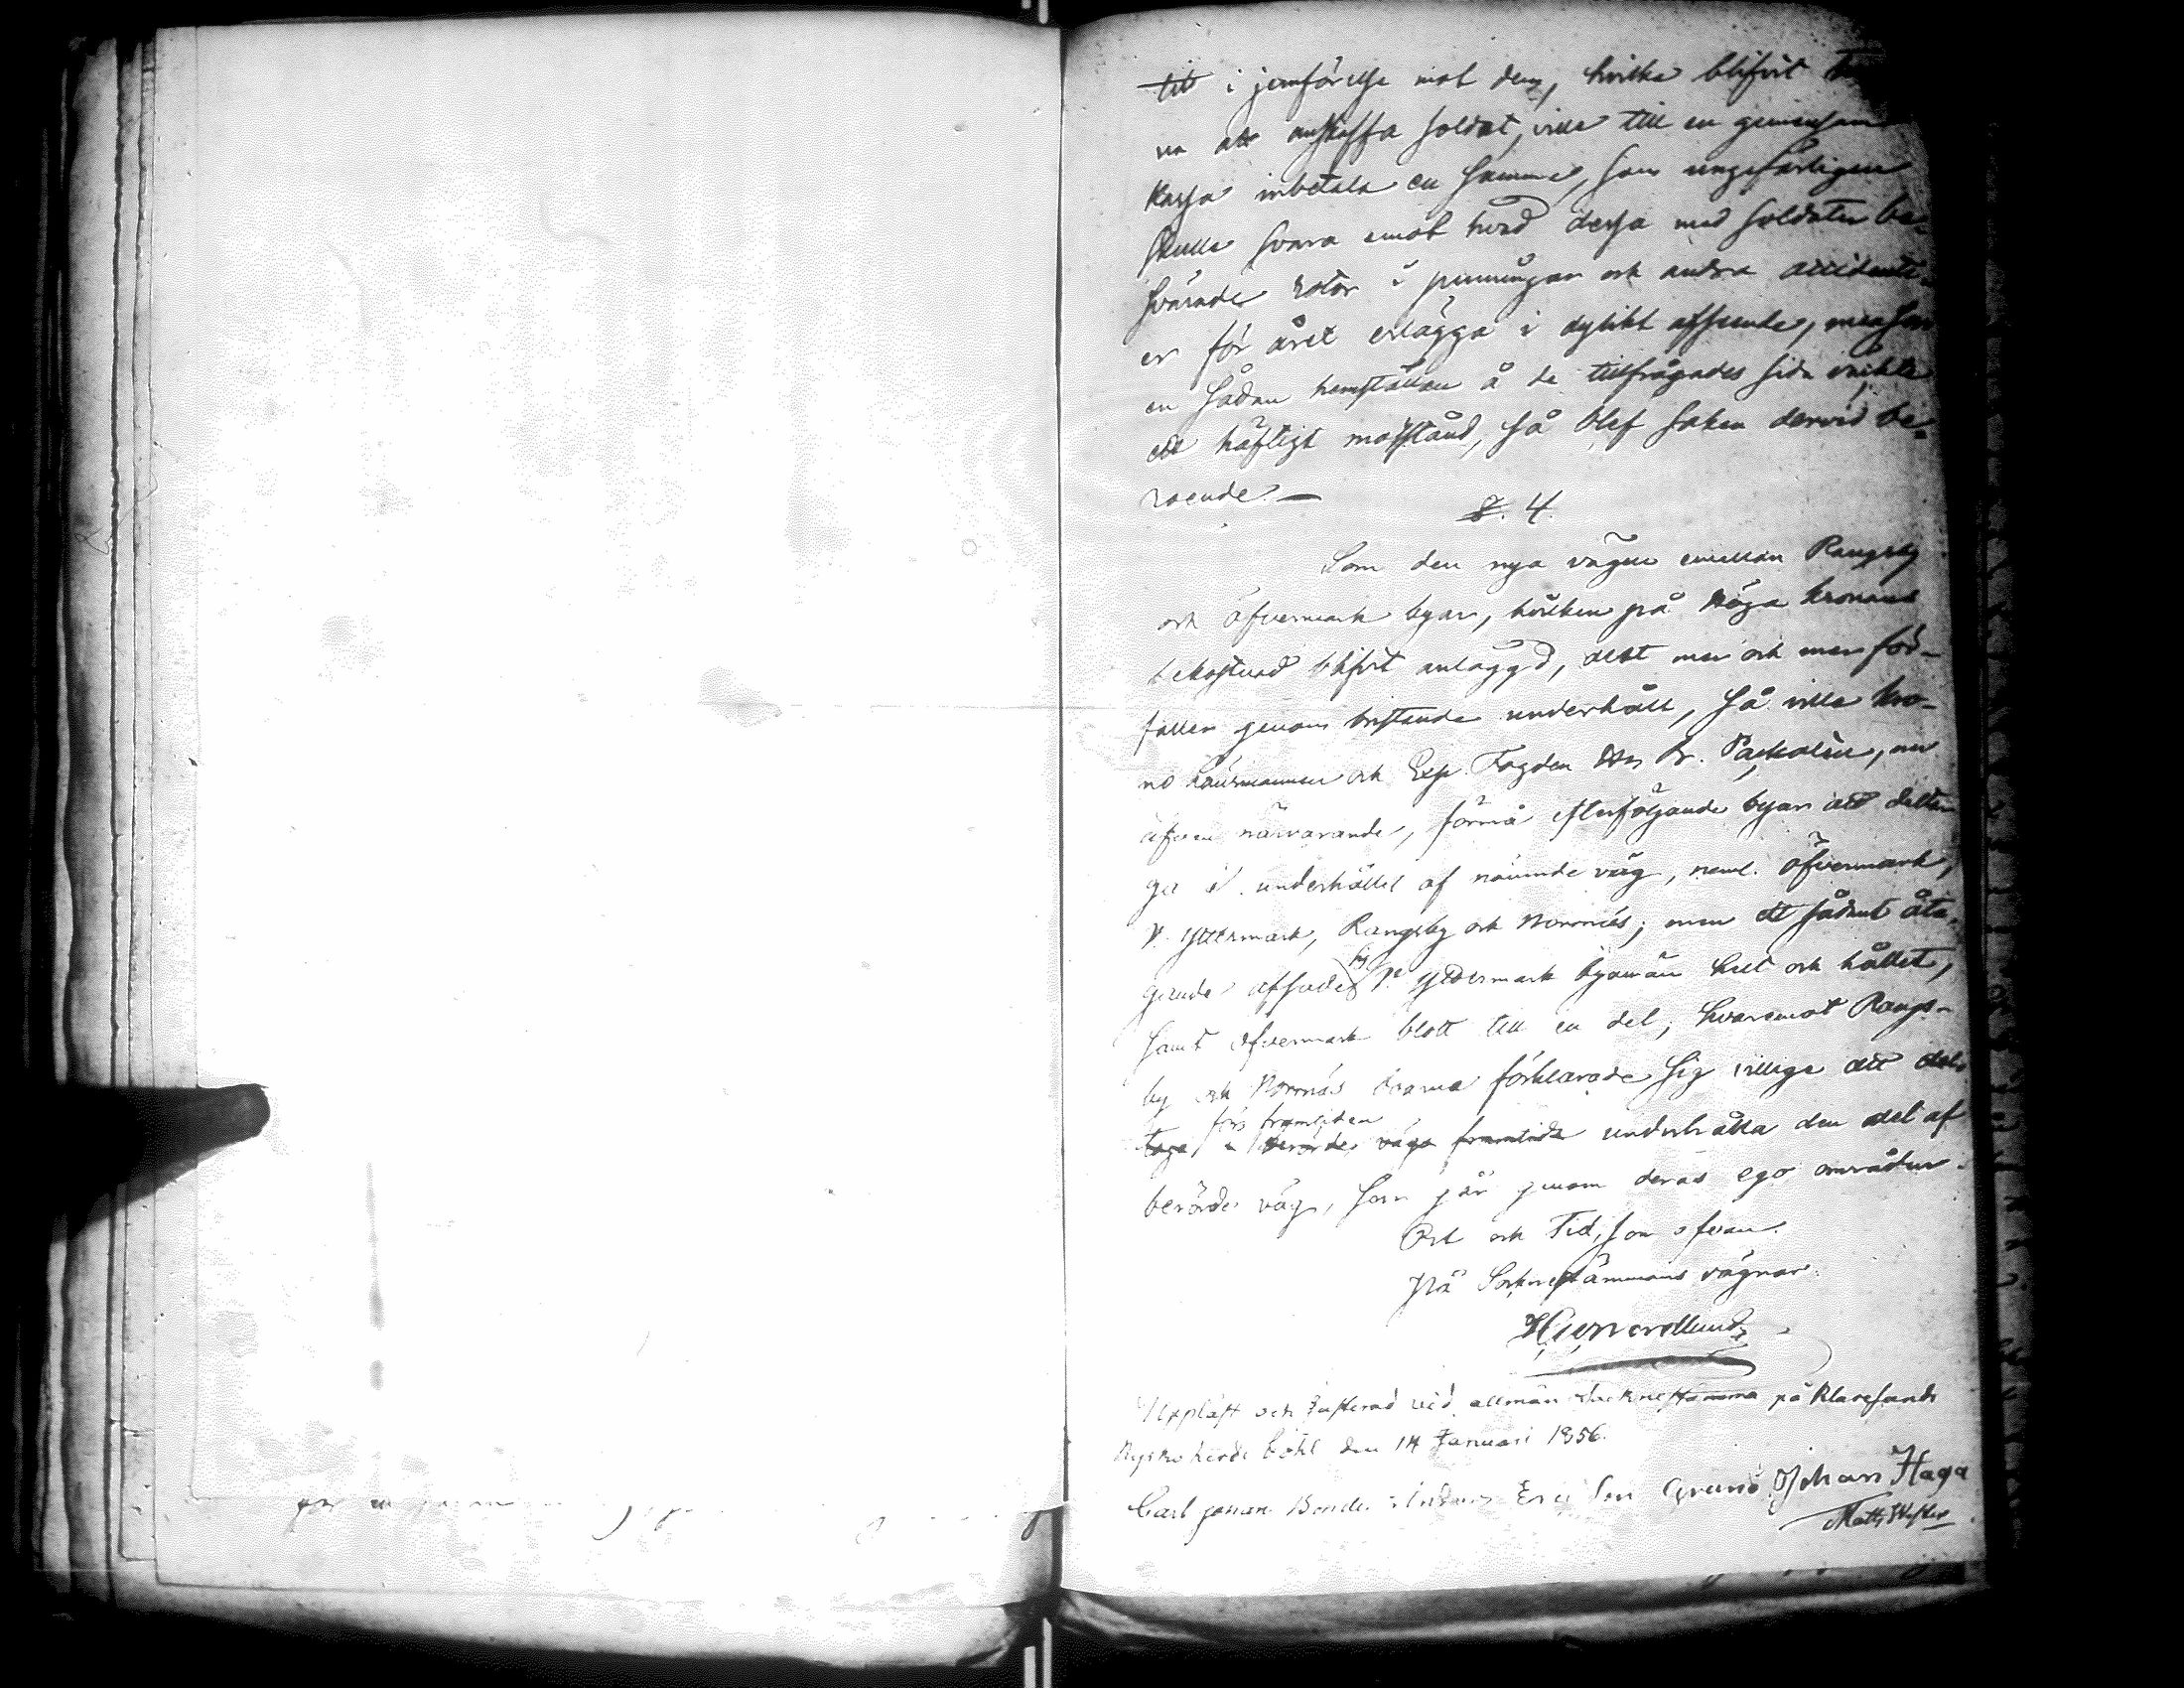 till i jemförelse mot dem, hvilka blifvit
na att anskaffa soldat, ville till en gemensam
kassa inbetala en summa, som ungefärligen
skulle svara emot hvad dessa med soldater be-
svärade rotar i penningar och andra accidenti-
er för året erlägga i dylikt afseende, men som
en sådan hemställan å de tillfrågades sida väckte
ett häftigt motstånd, så blef saken dervid be-
roende. —
§. 4.
Som den nya vägen emellan Rangsby
och Öfvermark byar, hvilken på Höga Kronans
bekostnad blifvit anlaggd, allt mer och mer för-
faller genom bristande underhåll, så ville kro-
no Länsmannen och Exp. Fogden Hr Packalén, nu
äfven närvarande, förmå efterföljande byar att delta-
ga i underhållet af nämnde väg, neml. Öfvermark,
Y. Yttermark, Rangsby och Norrnäs; men ett sådant åta-
gande afsade sig Y. Yttermark byamän helt och hållet,
samt Öfvermark blott till en del; hvaremot Rangs-
by och Norrnäs boarna förklarade sig villige att del-
för framtiden
taga i berörde väga framtida underhålla den del af
berörde väg, som går genom deras ego områden.
Ort och Tid, som ofvan.
På Socknestämmans vägnar:
Uppläst och Justerad vid allmän Socknestämma på Klaresunds
Kyrkoherde Böhl den 14 Januari 1856.
Carl Johan Bonde Anders Ersi Son Grund Johan Haga
Matts